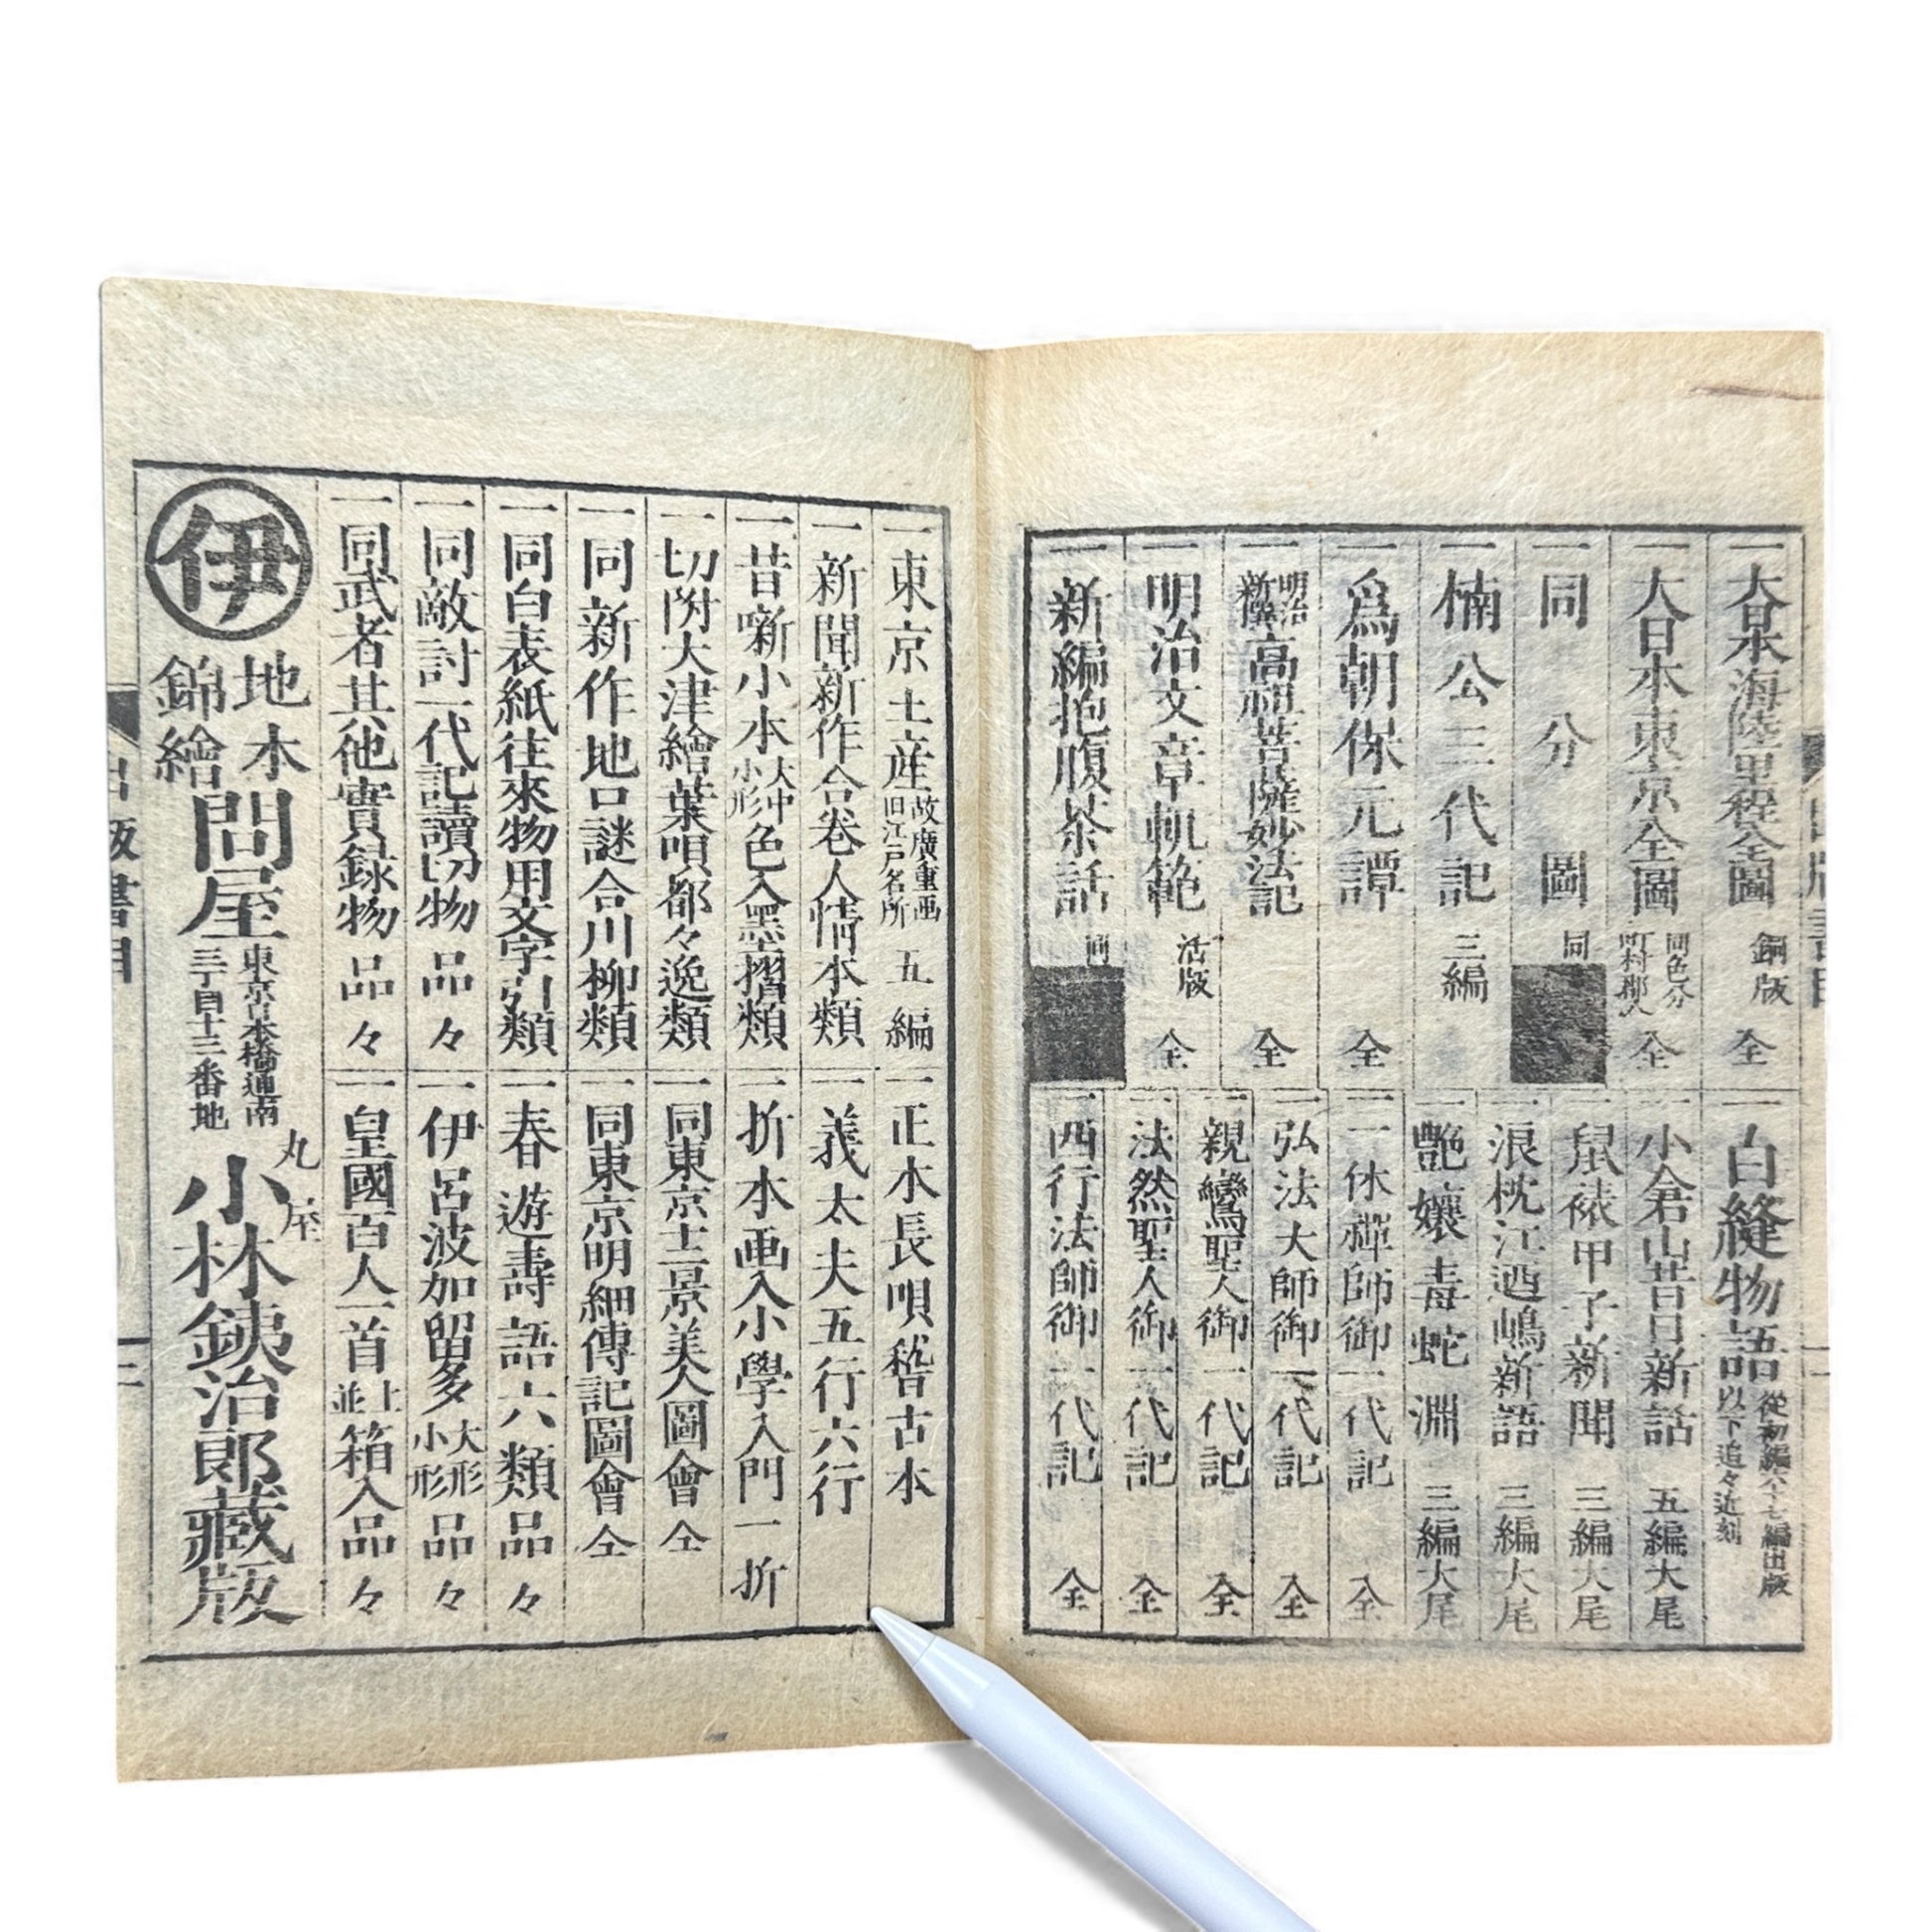 一大日本海陸里程全圖 銅版 全
一大日本東京全圖 同色分 町村郡入 全
一同分圖 同
一楠公三代記 三編
一爲朝保元譚 全
一明治新撰高祖菩薩妙法記 全
一明治文章軌範 活版 全
一新編抱腹茶話 同
一白縫物語 從初編六十七編出版 以下追々近刻
一小倉山昔日新話 五編大尾
一鼠裱甲子新聞 三編大尾
一浪枕江廼嶋新語 三編大尾
一艷孃毒蛇淵 三編大尾
一一休禪師御一代記 全
一弘法大師御一代記 全
一親鸞聖人御一代記 全
一法然聖人御一代記 全
一西行法師御一代記 全
一東京土産 故廣重画 旧江戸名所 五編
一新聞新作合巻人情本類
一昔噺小本 大中小形 色入墨摺類
一切附大津繪葉唄都々逸類
一同新作地口謎合川柳類
一同白表紙往來物用文字引類
一同敵討一代記讀切物品々
一同武者其他實録物品々
一正本長唄稽古本
一義太夫五行六行
一折本画入小學入門一折
一同東京十二景美人圖會 仝
一同東京明細傳記圖會 仝
一春遊壽語六類品々
一伊呂波加留多 大形 小形 品々
一皇國百人一首 上 並 箱入品々
伊
地本
錦繪
問屋
東京日本橋通南
三丁目十三番地
丸屋
小林鉄治郎藏版
出版書目
二